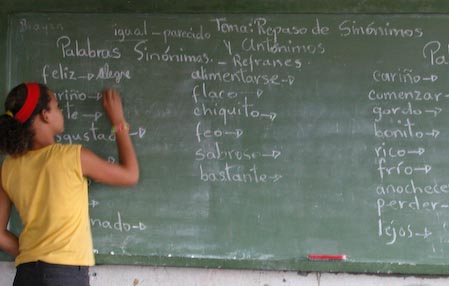 igual - parecido
Tema: Repaso de Sinónimos
Y Antónimos
- Refranes.
Palabras Sinónimos.
feliz → Alegre
alimentarse →
flaco →
chiquito →
feo →
sabroso →
bastante →
cariño →
comenzar →
gordo →
bonito →
rico →
frío →
anochece
perder →
lejos →